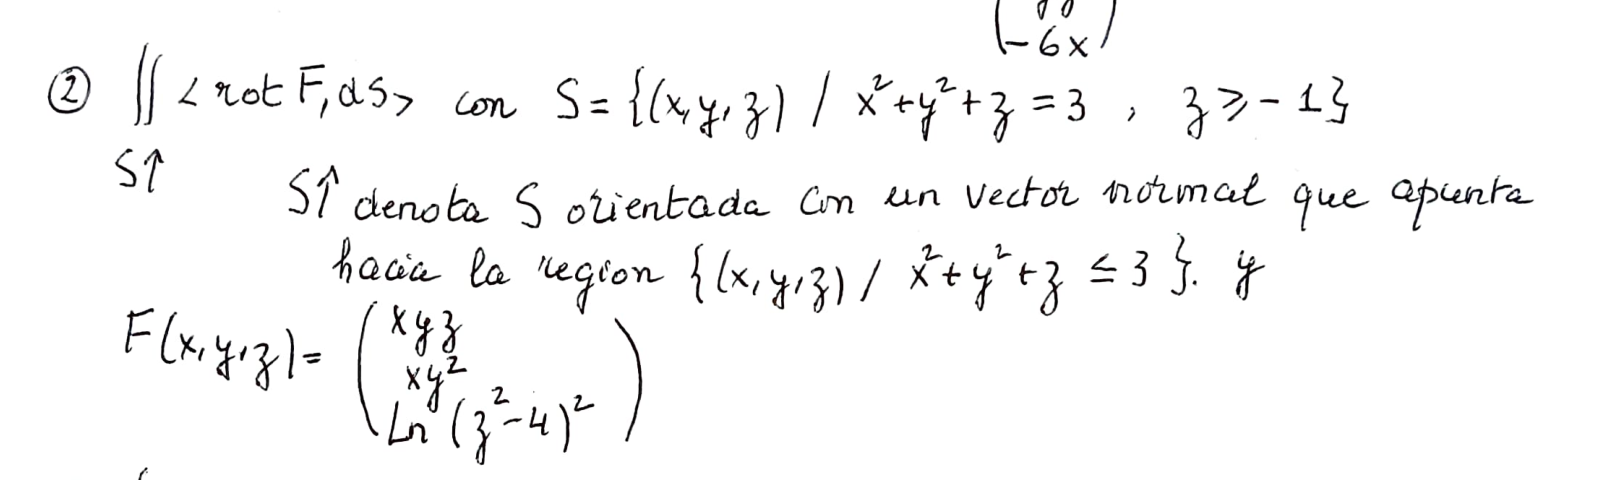 -6x
② ∬ < rot F, ds > con S = {(x,y,z) / x²+y²+z = 3 , z ≥ -1}
S↑
S↑ denota S orientada con un vector normal que apunta
hacia la region {(x,y,z) / x²+y²+z ≤ 3}. y
F(x,y,z) = ( xyz
xy²
Ln (z²-4)² )